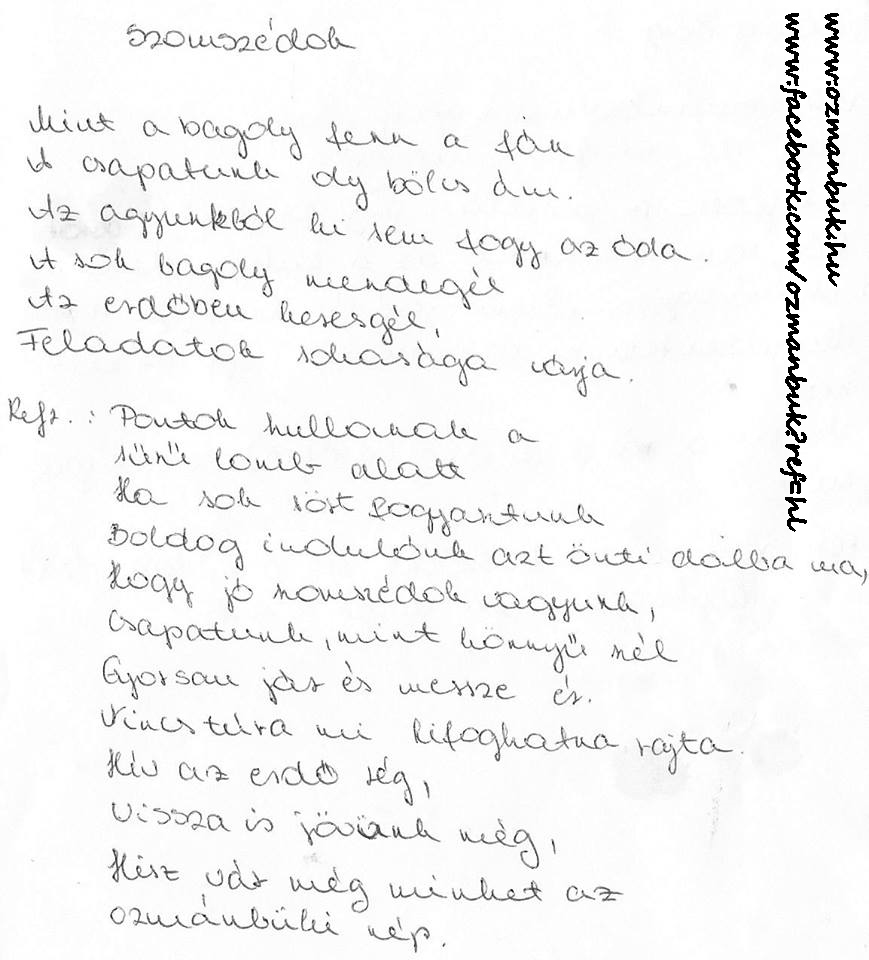 Szomszédok
Mint a bagoly fenn a fán
A csapatunk oly bölcs ám.
Az agyunkból ki sem fogy az óda.
A sok bagoly mendegél
Az erdőben keresgél,
Feladatok sokasága várja.
Refr.: Pontok hullanak a
sűrű lomb alatt
Ha sok sört fogyasztunk
Boldog indulónk azt önti dalba ma,
Hogy jó szomszédok vagyunk,
Csapatunk, mint könnyű szél
Gyorsan jár és messze ér.
Nincs túra mi kifoghatna rajta.
Hív az erdő rég,
Vissza is jövünk még,
Hisz vár még minket az
ozmánbüki nép.
www.ozmanbuk.hu
www.facebook.com/ozmanbuk?ref=hl